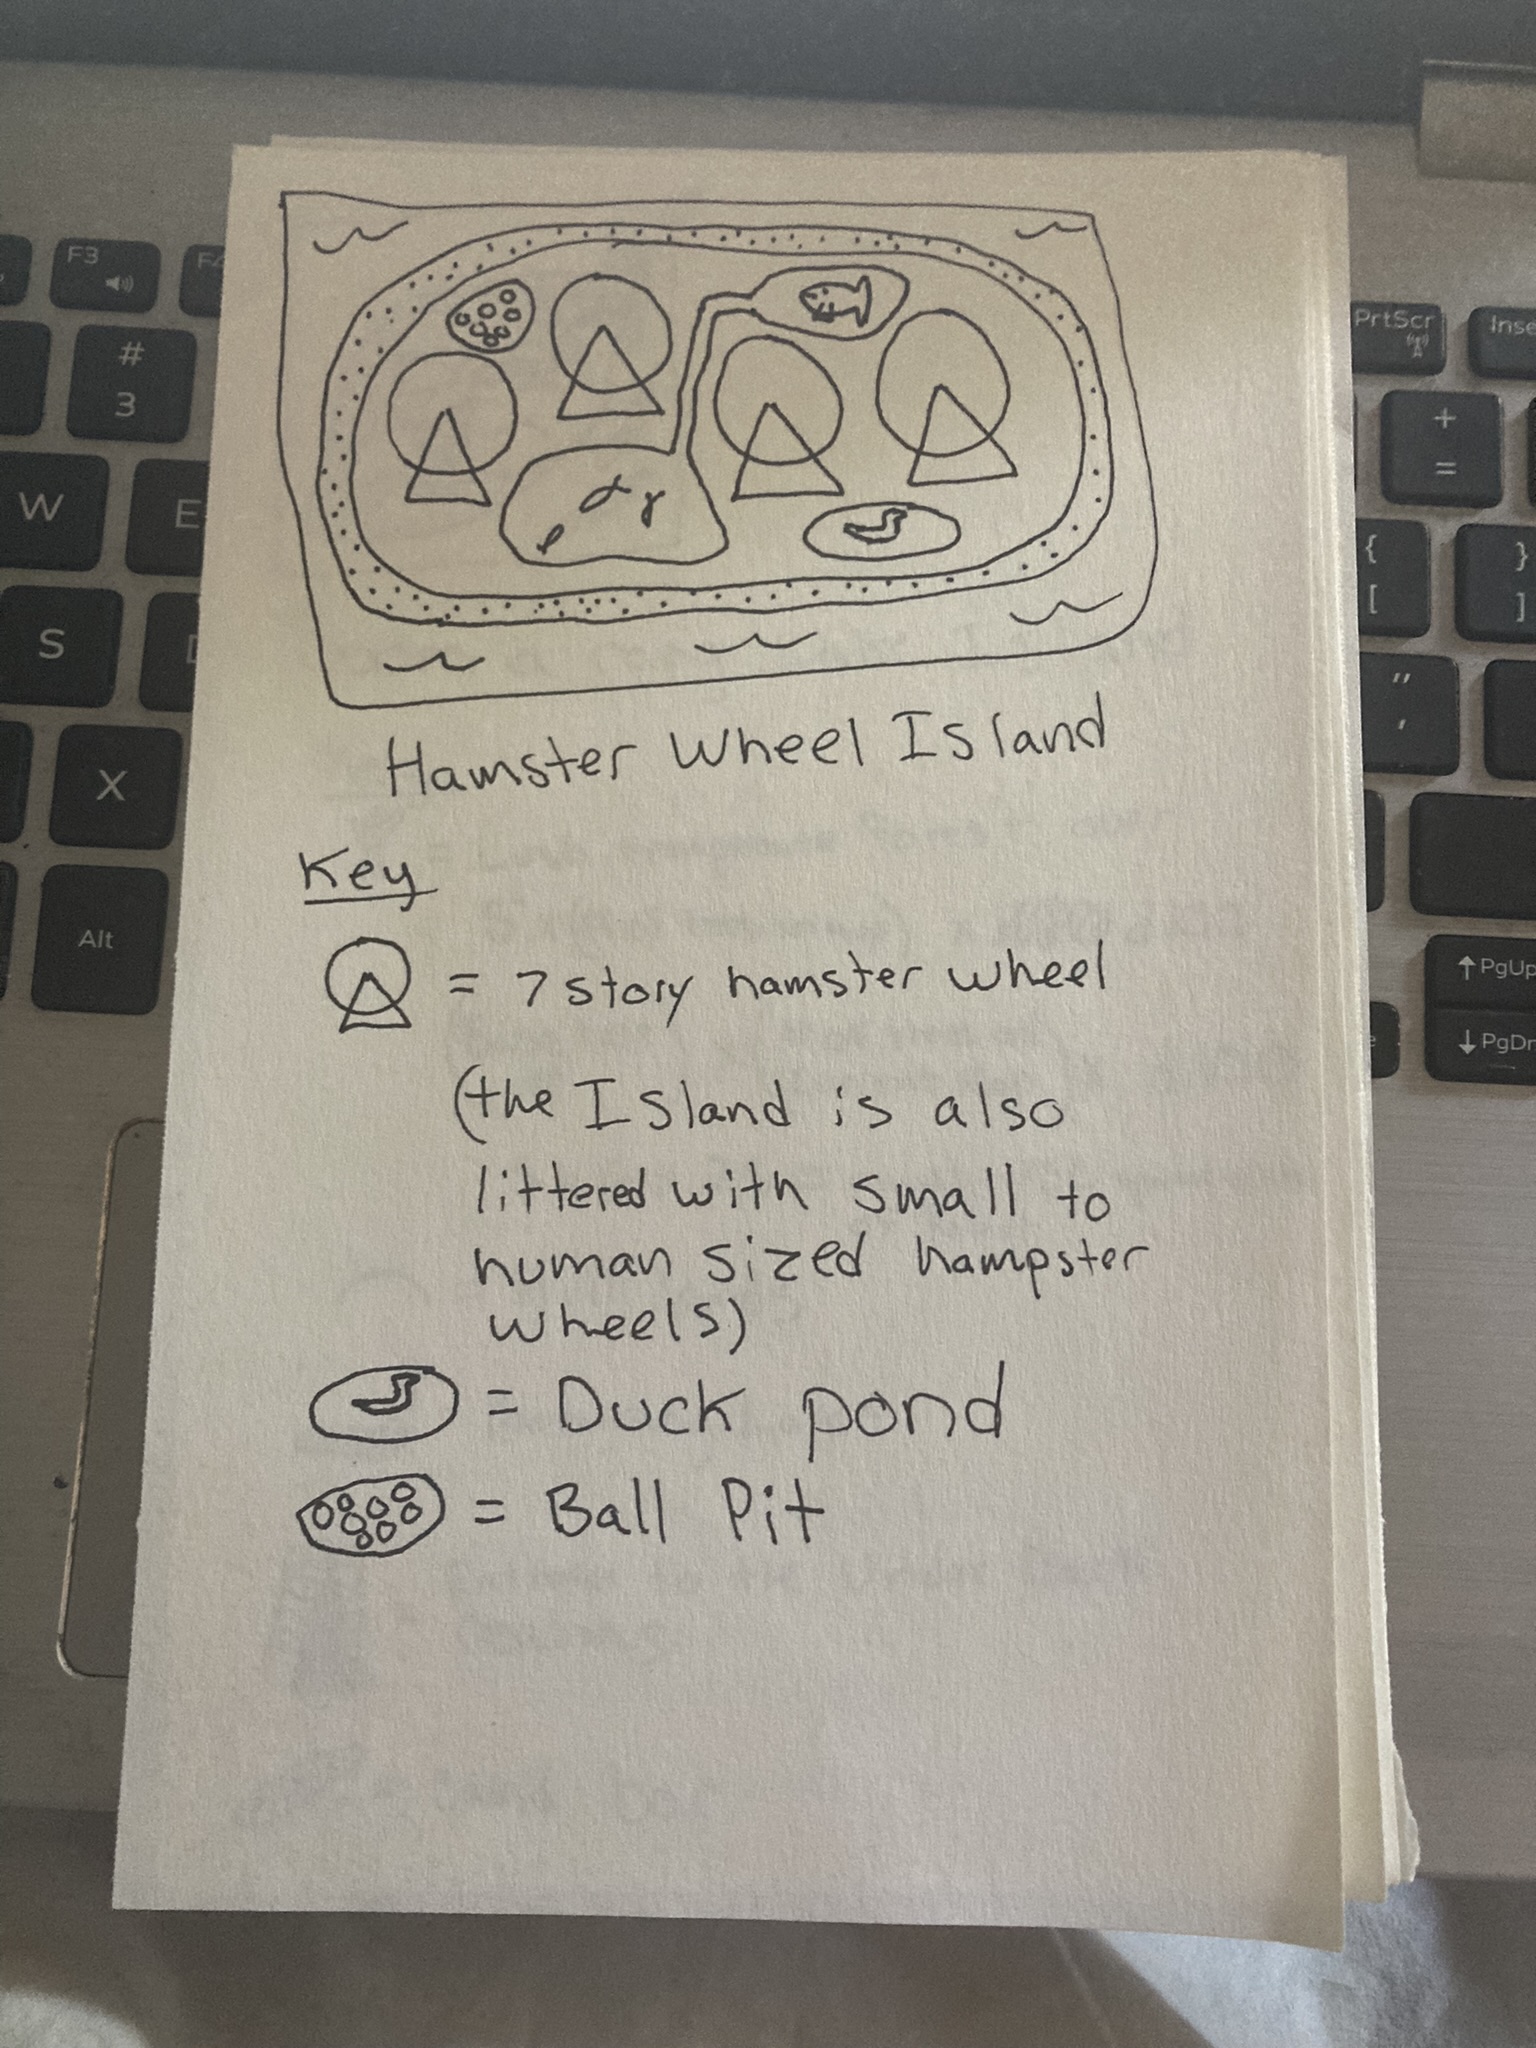 Hamster Wheel Island
Key
= 7 story hamster wheel
(the Island is also
littered with small to
human sized hampster
wheels)
= Duck pond
= Ball Pit
F3
#
3
W
E
S
X
Alt
PrtScr
Inse
+
=
{
[
}
]
"
,
↑ PgUp
↓ PgDn